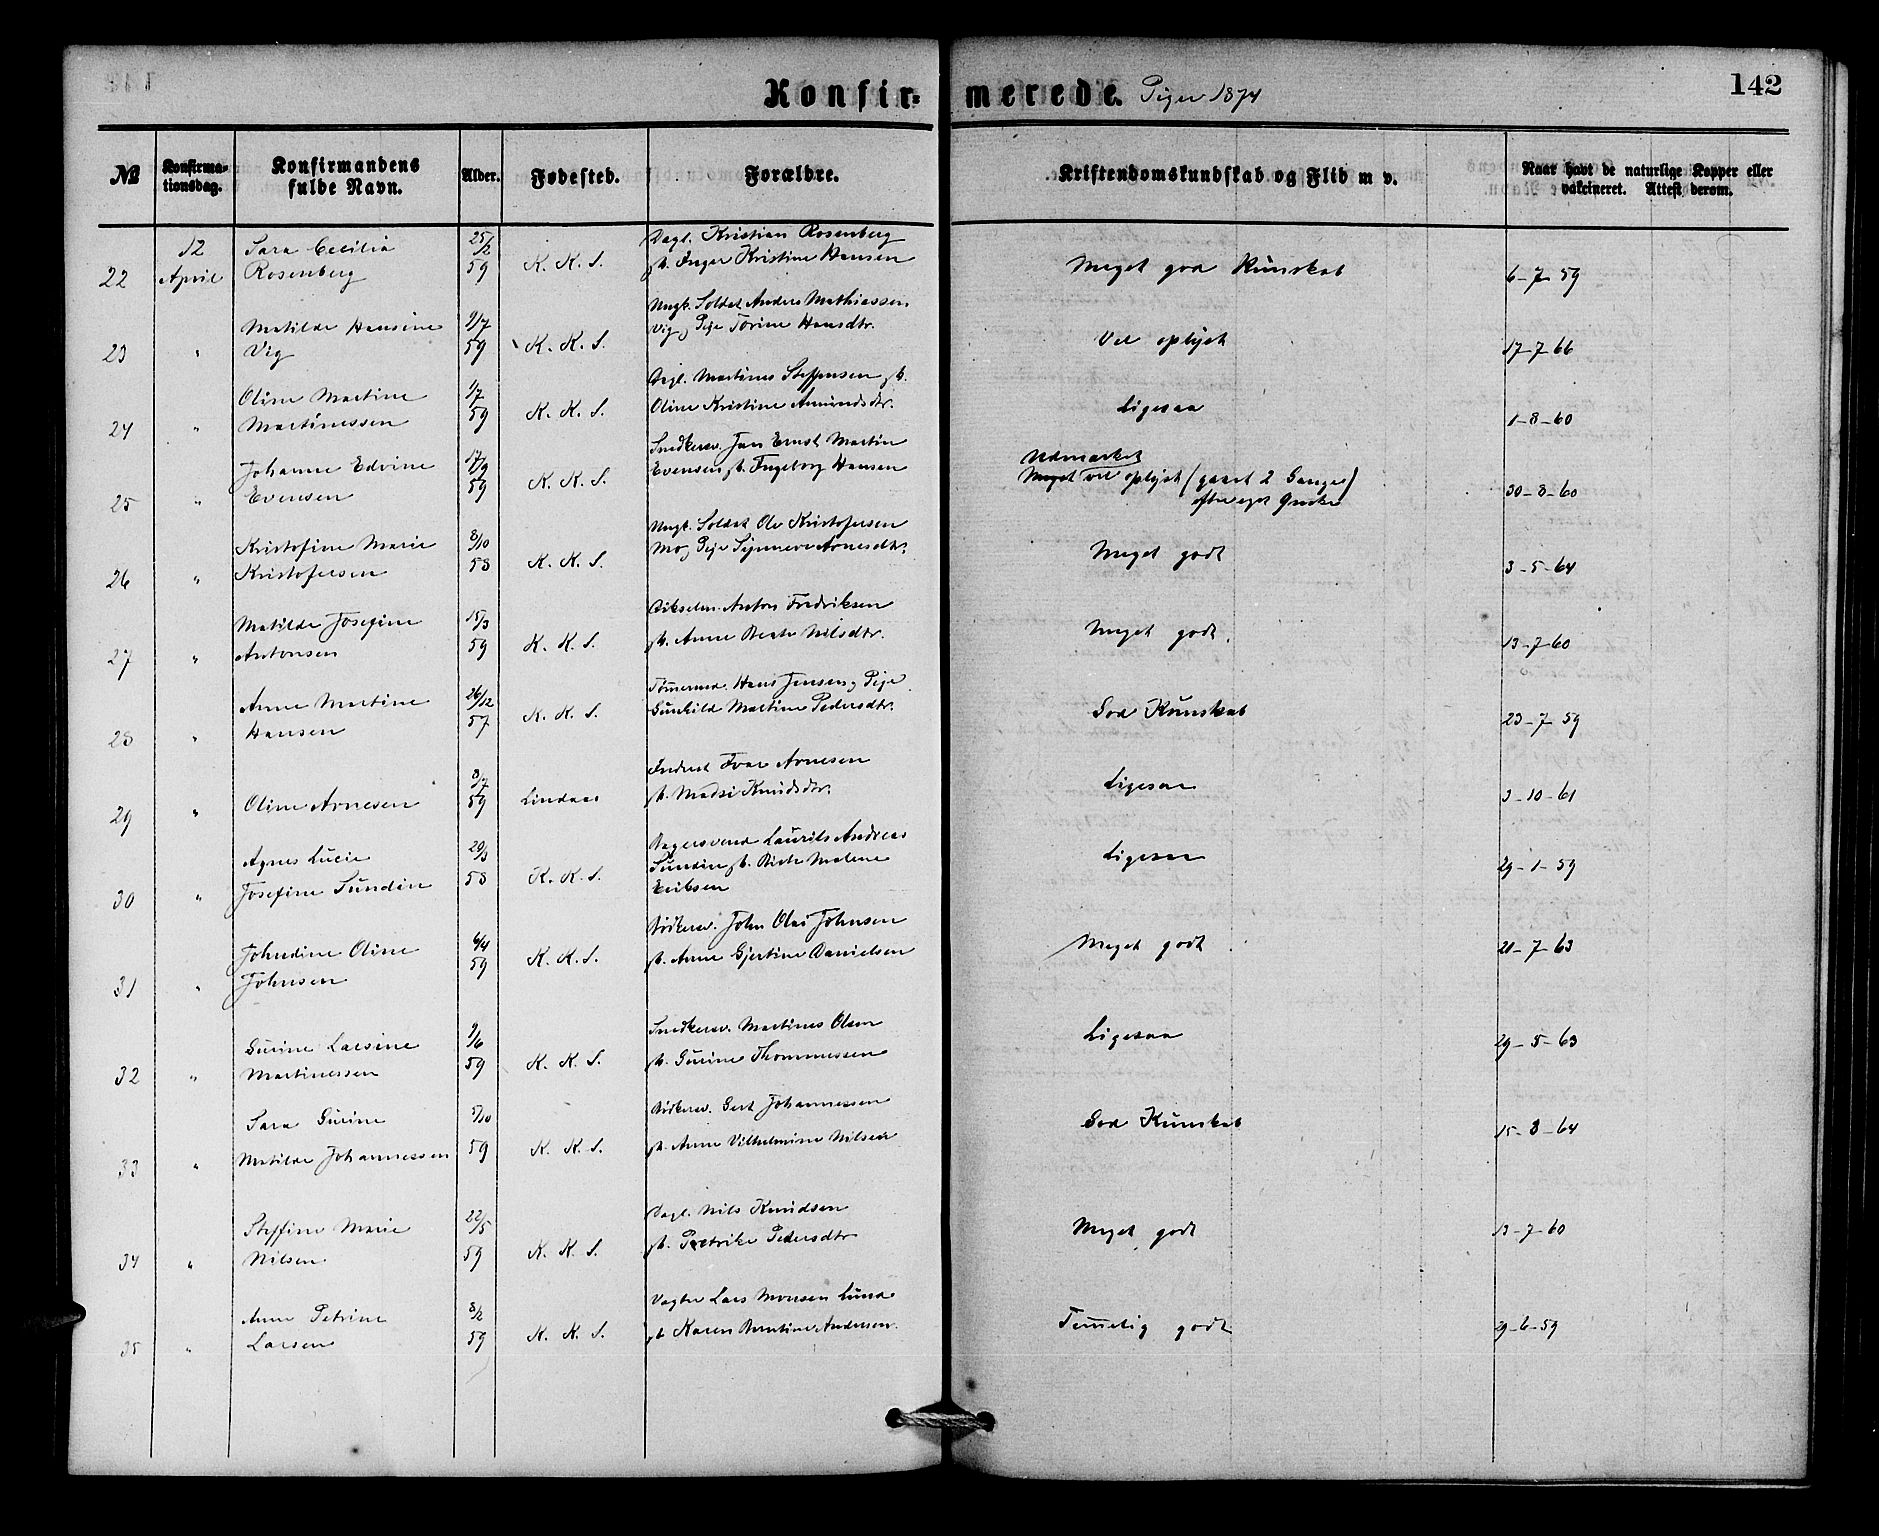 142
Konfirmerede. Piger 1874
№ Konfirmationsdag. Konfirmandens fulde Navn. Alder. Fødested. Forældre. Kristendomskundskab og Flid m v. Naar havt de naturlige Kopper eller vakcineret. Attest derom.
12 Sara Cecilia 25/2 Dagl. Kristian Rosenberg
22 April Rosenberg 59 K. K. S. Inger Kristine Hansen Meget god Kunskab 6-7-59
Ungk. Soldat Anders Mathiassen
Matilde Hansine 9/7 Vig, Pige Torine Hansdtr.
23 " Vig 59 K. K. S. Vel oplyst 17-7-66
Martines Steffensen
Oline Martine 1/7 Oline Kristine Amundsdtr.
24 " Martinessen 59 K. K. S. Ligesaa 1-8-60
Snedkersv. Jan Ernst Martin
Johanne Edvine 17/9 Evensen Ingeborg Hansen Udmærket
25 " Evensen 59 K. K. S. Meget vel oplyst (gaaet 2 Gange) 30-8-60
efter eget Ønske
Ungk. Soldat Ole Kristofersen
Kristofine Marie 8/10 Mo, Pige Synneve Arnesdtr.
26 " Kristofersen 58 K. K. S. Meget godt 3-5-64
Anton Fredriksen
Matilde Josefine 15/3 Anne Beate Nilsdtr.
27 " Antonsen 59 K. K. S. Meget godt. 13-7-60
Tømmermd. Hans Jensen, Pige
Anne Martine 26/12 Gunhild Martine Pedersdtr.
28 " Hansen 57 K. K. S. God Kunskab 23-7-59
Inderst Ivar Arnesen
8/7 Madsi Knudsdtr.
29 " Oline Arnesen 59 Lindaas Ligesaa 3-10-61
Bagersvend Laurits Andreas
Agnes Lucie 20/3 Sundin Birte Malene
30 " Josefine Sundin 58 K. K. S. Eriksen Ligesaa 29-1-59
Bødkersv. John Olai Johnsen
Johndine Oline 6/4 Anne Gjertine Danielsen
31 " Johnsen 59 K. K. S. Meget godt 20-7-63
Snedkersv. Martines Olsen
Gurine Larsine 9/6 Gurine Thommessen
32 " Martinessen 59 K. K. S. Ligesaa 29-5-63
Bødkersv. Gert Johannessen
Sara Gurine 5/10 Anne Vilhelmine Nilsen
33 " Matilde Johannessen 59 K. K. S. God Kunskab 15-8-64
Dagl. Nils Knudsen
Steffine Marie 22/5 Petrike Pedersdtr
34 " Nilsen 59 K. K. S. Meget godt 13-7-60
Vægter Lars Monsen Lunde
Anne Petrine 8/2 Karen Berntine Andersen.
35 " Larsen 59 K. K. S. Temelig godt 29-6-59